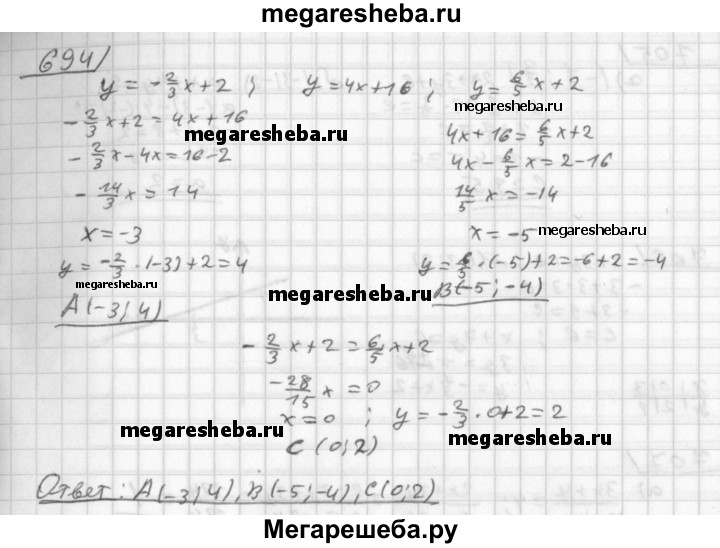 megaresheba.ru
694)
y = -2/3 x + 2 ; y = 4x + 16 ; y = 6/5 x + 2
megaresheba.ru
-2/3 x + 2 = 4x + 16
megaresheba.ru
4x + 16 = 6/5 x + 2
-2/3 x - 4x = 16 - 2
4x - 6/5 x = 2 - 16
-14/3 x = 14
14/5 x = -14
x = -3
x = -5
megaresheba.ru
y = -2/3 · (-3) + 2 = 4
y = 6/5 · (-5) + 2 = -6 + 2 = -4
megaresheba.ru
megaresheba.ru
megaresheba.ru
A(-3; 4)
B(-5; -4)
-2/3 x + 2 = 6/5 x + 2
-28/15 x = 0
megaresheba.ru
x = 0 ; y = -2/3 · 0 + 2 = 2
megaresheba.ru
megaresheba.ru
C (0; 2)
Ответ: A(-3; 4), B(-5; -4), C(0; 2)
megaresheba.ru
Мегарешеба.ру